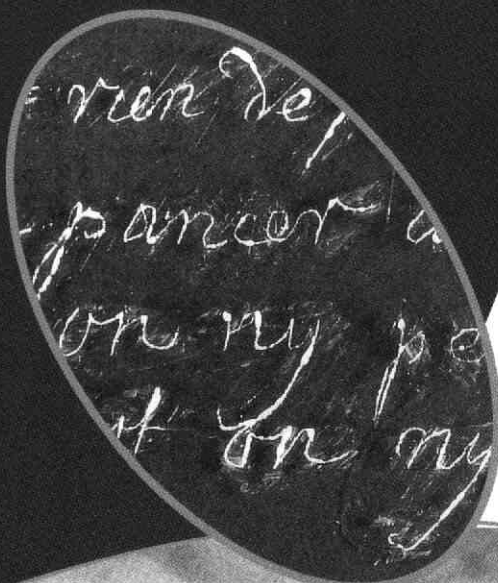 rien de
pancer
on ny pe
on ny